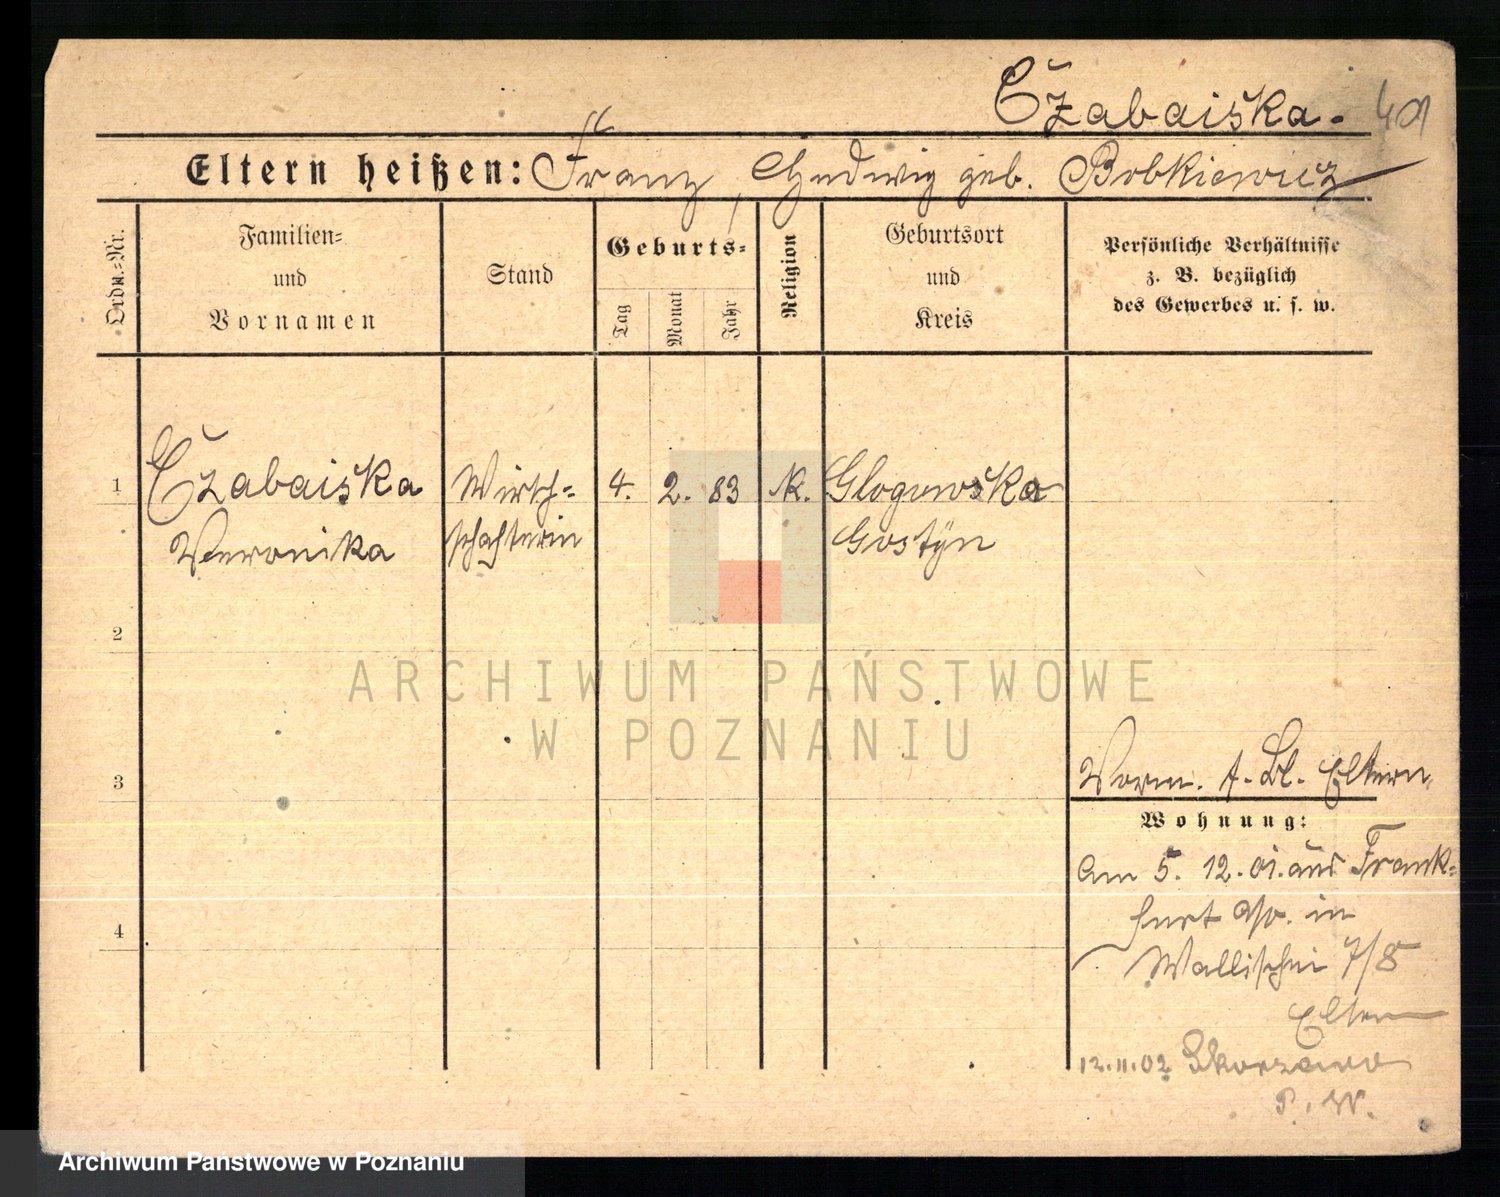 Czabaiska. 49
Eltern heißen: Franz, Hedwig geb. Bobkiewicz
Ordn.=Nr.
Familien=
und
Vornamen
Stand
Geburts=
Tag
Monat
Jahr
Religion
Geburtsort
und
Kreis
Persönliche Verhältnisse
z. B. bezüglich
des Gewerbes u. s. w.
1 Czabaiska Wirth= 4. 2. 83 k. Glogowska
Veronika schafterin Gostyn
2
ARCHIWUM PAŃSTWOWE
W POZNANIU
3
Vorm. s. Bl. Eltern
Wohnung:
Am 5. 12. 01. aus Frank=
4
furt a/o. in
Wallischei 7/8
Eltern
12.11.02 Skorzewo
P. W.
Archiwum Państwowe w Poznaniu